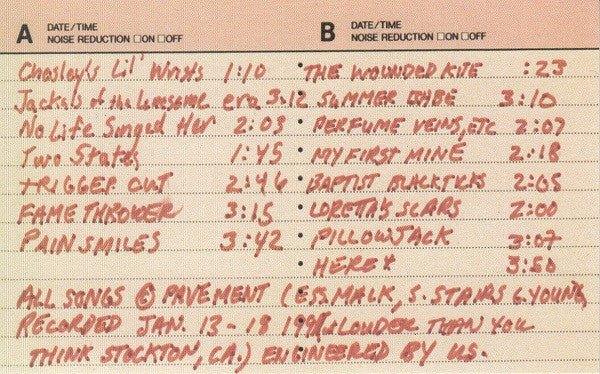 A DATE/TIME
NOISE REDUCTION □ON □OFF
B DATE/TIME
NOISE REDUCTION □ON □OFF
Chesley's Lil' Wrists 1:10
Jackals of the Lonesome era 3:12
No Life Singed Her 2:03
Two States 1:45
TRIGGER CUT 2:46
FAME THROWER 3:15
PAIN SMILES 3:42
• THE WOUNDED KITE :23
• SUMMER BABE 3:10
• PERFUME VEINS, ETC 2:07
• MY FIRST MINE 2:18
• BAPTIST BLACKTICKS 2:05
• LORETTA'S SCARS 2:00
• PILLOWJACK 3:07
• HERE* 3:50
ALL SONGS © PAVEMENT (ESS. MALK, S. STAIRS G. YOUNG,
RECORDED JAN. 13-18 LOUDER THAN YOU
THINK STOCKTON, CA.) ENGINEERED BY US.